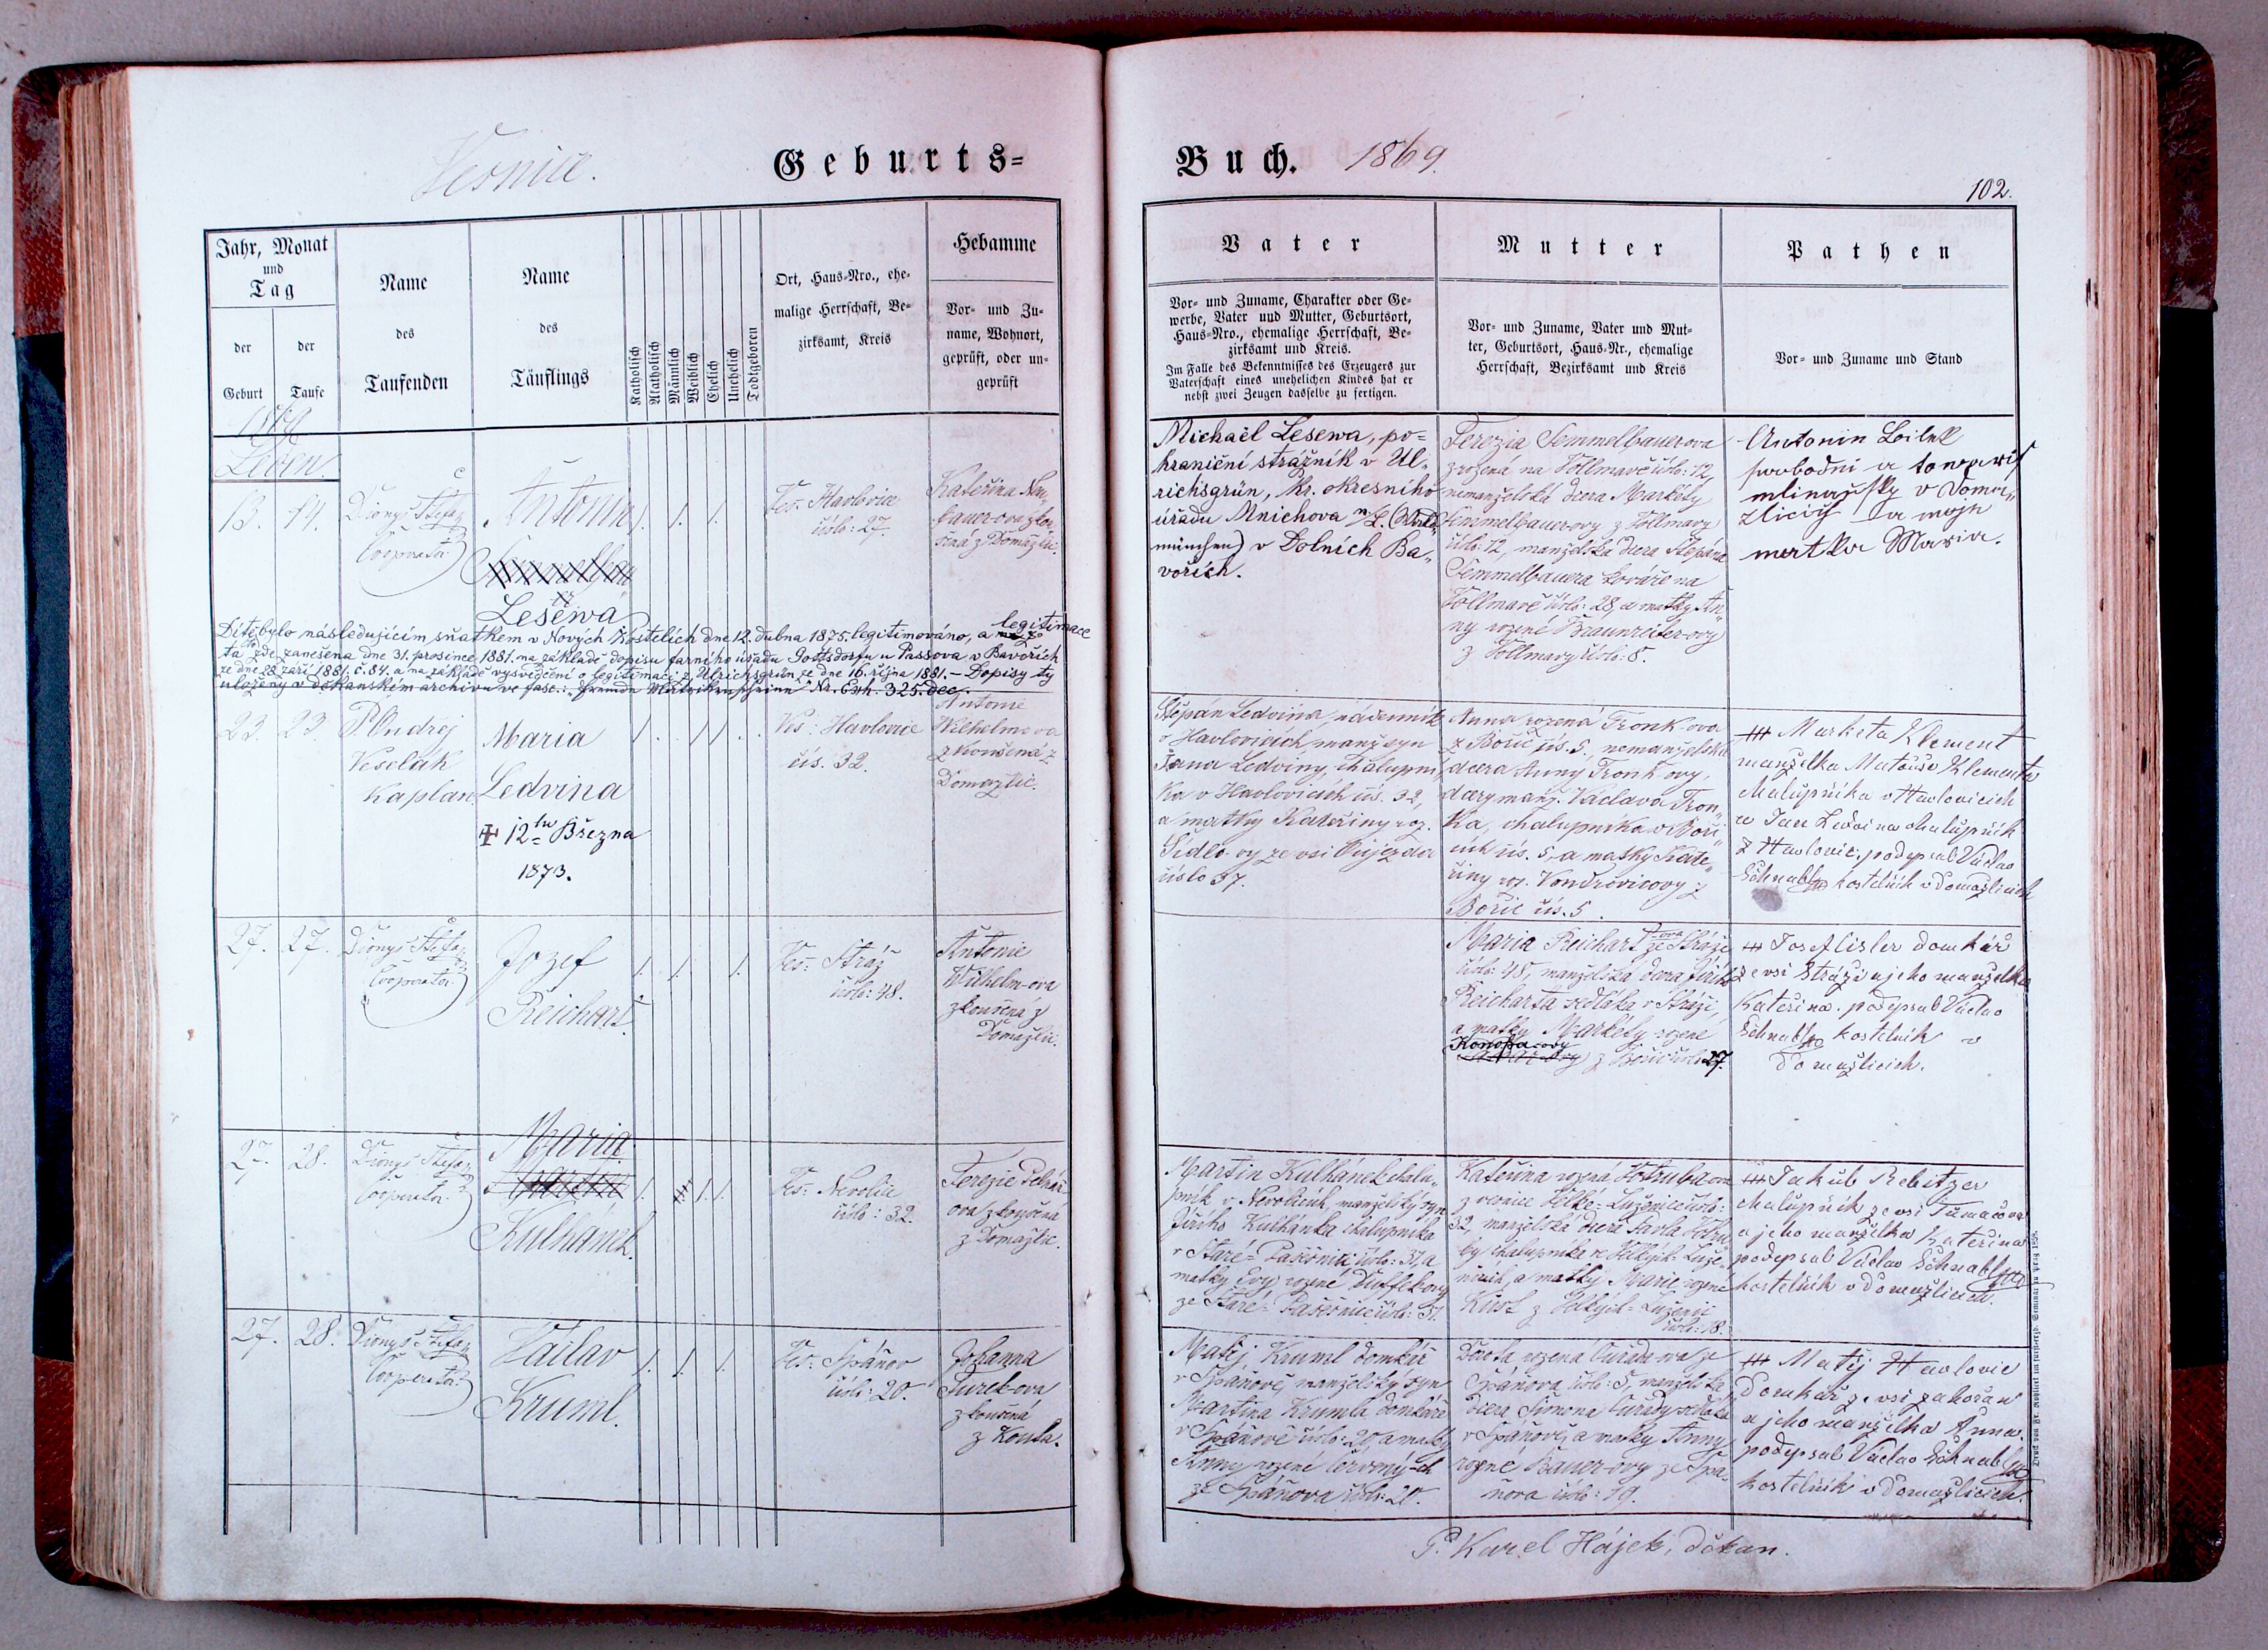 Vesnice.
Geburts-
Buch. 1869.
102.
Jahr, Monat
und
Tag
der
Geburt
der
Taufe
Name
des
Taufenden
Name
des
Täuflings
Katholisch
Akatholisch
Männlich
Weiblich
Ehelich
Unehelich
Todtgeboren
Ort, Haus-Nro., ehe-
malige Herrschaft, Be-
zirksamt, Kreis
Hebamme
Vor- und Zu-
name, Wohnort,
geprüft, oder un-
geprüft
Vater
Vor- und Zuname, Charakter oder Ge-
werbe, Vater und Mutter, Geburtsort,
Haus-Nro., ehemalige Herrschaft, Be-
zirksamt und Kreis.
Im Falle des Bekenntnisses des Erzeugers zur
Vaterschaft eines unehelichen Kindes hat er
nebst zwei Zeugen dasselbe zu fertigen.
Mutter
Vor- und Zuname, Vater und Mut-
ter, Geburtsort, Haus-Nr., ehemalige
Herrschaft, Bezirksamt und Kreis
Pathen
Vor- und Zuname und Stand
Leden.
13. 14.
Dionys Štefa
Cooperator
Antonin
Lesewa
1. 1. 1.
Ves: Havlovice
číslo: 27.
Kateřina Neu
bauer-ova zkou
šená z Domažlic.
Michaël Lesewa, po-
hraniční strážník v Ul-
richsgrün, kr. okresního
úřadu Mnichova n/L. (Wald-
münchen) v Dolních Ba-
vořích.
Terezia Semmelbauerova
zrozená na Vollmavě číslo: 12,
nemanželská dcera Markéty
Semmelbauer-ovy z Vollmavy
číslo: 12, manželská dcera Štěpána
Semmelbauera kováře na
Vollmavě číslo: 28, a matky An-
ny rozené Braunreiter-ovy
z Vollmavy číslo: 8.
Antonin
svobodní a
mlinařský v Domaž
zlicich a moje
matka Maria.
Dítě bylo následujícím sňatkem v Nových Kostelích dne 12. dubna 1875. legitimováno, a legitimace
ta zde zanešena dne 31. prosince 1881. na základě dopisu farního úřadu Gottsdorfu u Passova v Bavořích
ze dne 28. září 1881. č. 84. a na základě vysvědčení o legitimaci z Ulrichsgrün ze dne 16. října 1881. – Dopisy ty
uloženy v děkanském archivu ve fasc.: "Fremde Matrikenscheine" Nr. Exh. 325. dec.
23. 23.
P. Ondřej
Veselák
Kaplan
Maria
Ledvina
✠ 12ho Března
1873.
1. 1 1
Ves: Havlovice
čís. 32.
Antonie
Wilhelmova
zkoušená z
Domažlic.
Štěpán Ledvina, nádenník
v Havlovicích, manž. syn
Jana Ledviny, chalupní-
ka v Havlovicích čís. 32,
a matky Kateřiny roz.
Šídlo-vy ze vsi Oujezda
číslo 37.
Anna rozená Tronk-ova
z Bořic čís. 5, nemanželská
dcera Anny Tronk-ovy,
dcery manž. Václava Tron-
ka, chalupníka v Boři-
cích čís. 5, a matky Kate-
řiny roz. Vondrovicovy z
Bořic čís. 5.
+++ Marketa Klement
manželka Matouše Klementa
chalupníka v Havlovicich
a Jan Ledvina chalupník
z Havlovic. podepsal Václav
Schnabl kostelník v Domažlicich
27. 27.
Dionys Štefa
Cooperator
Jozef
Reichart
1. 1. 1.
Ves: Stráž
číslo: 48.
Antonie
Wilhelm-ova
zkoušená z
Domažlic.
Maria Reichart-ova ze Stráže
číslo: 48, manželská dcera Jiřího
Reicharta sedláka v Stráži,
a matky Markéty rozené
Konopa-ovy z Bořic číslo 27.
+++ Josef Cisler domkář
ze vsi Stráži a jeho manželka
Kateřina. podepsal Václav
Schnabl kostelník v
Domažlicich.
27. 28.
Dionys Štefa
Cooperator
Maria
Kulhánek.
1. 1. 1.
Ves: Nevolice
číslo: 32.
Terezie
ova zkoušená
z Domažlic.
Martin Kulhánek chalu-
pník v Nevolicích, manželský syn
Jiřího Kulhánka chalupníka
v Staré-Pasečnici číslo: 31, a
matky Evy rozené Duffek-ovy
ze Staré-Pasečnice číslo: 31.
Kateřina rozená Votruba-ova
z vesnice Velké-Luženice číslo:
32, manželská dcera Pavla Votru-
by chalupníka ve Velkých-Luže-
nicích, a matky Marie rozené
z Velkých-Luženic
číslo: 18.
+++ Jakub Rebitzer
chalupník ze vsi Tlumačova
a jeho manželka Kateřina
podepsal Václav Schnabl
kostelník v Domažlicich.
27. 28.
Dionys Štefa
Cooperator
Václav
Kruml.
1. 1. 1.
Ves: Spáňov
číslo: 20.
Johanna
Turek-ova
zkoušená
z Kouta.
Matěj Kruml domkář
v Spáňově manželský syn
Martina Krumla domkáře
v Spáňově číslo: 20, a matky
Anny rozené Červený-ch
ze Spáňova číslo: 20.
Dorota rozená Čuřda-ova ze
Spáňova číslo: 5, manželská
dcera Šimona Čuřdy sedláka
v Spáňově, a matky Anny
rozené Bauer-ovy ze Spá-
ňova číslo: 19.
+++ Matěj Havlovic
Domkář ze vsi zahořan
a jeho manželka Anna.
podepsal Václav Schnabl
kostelník v Domažlicich.
P. Karel Hájek, děkan.